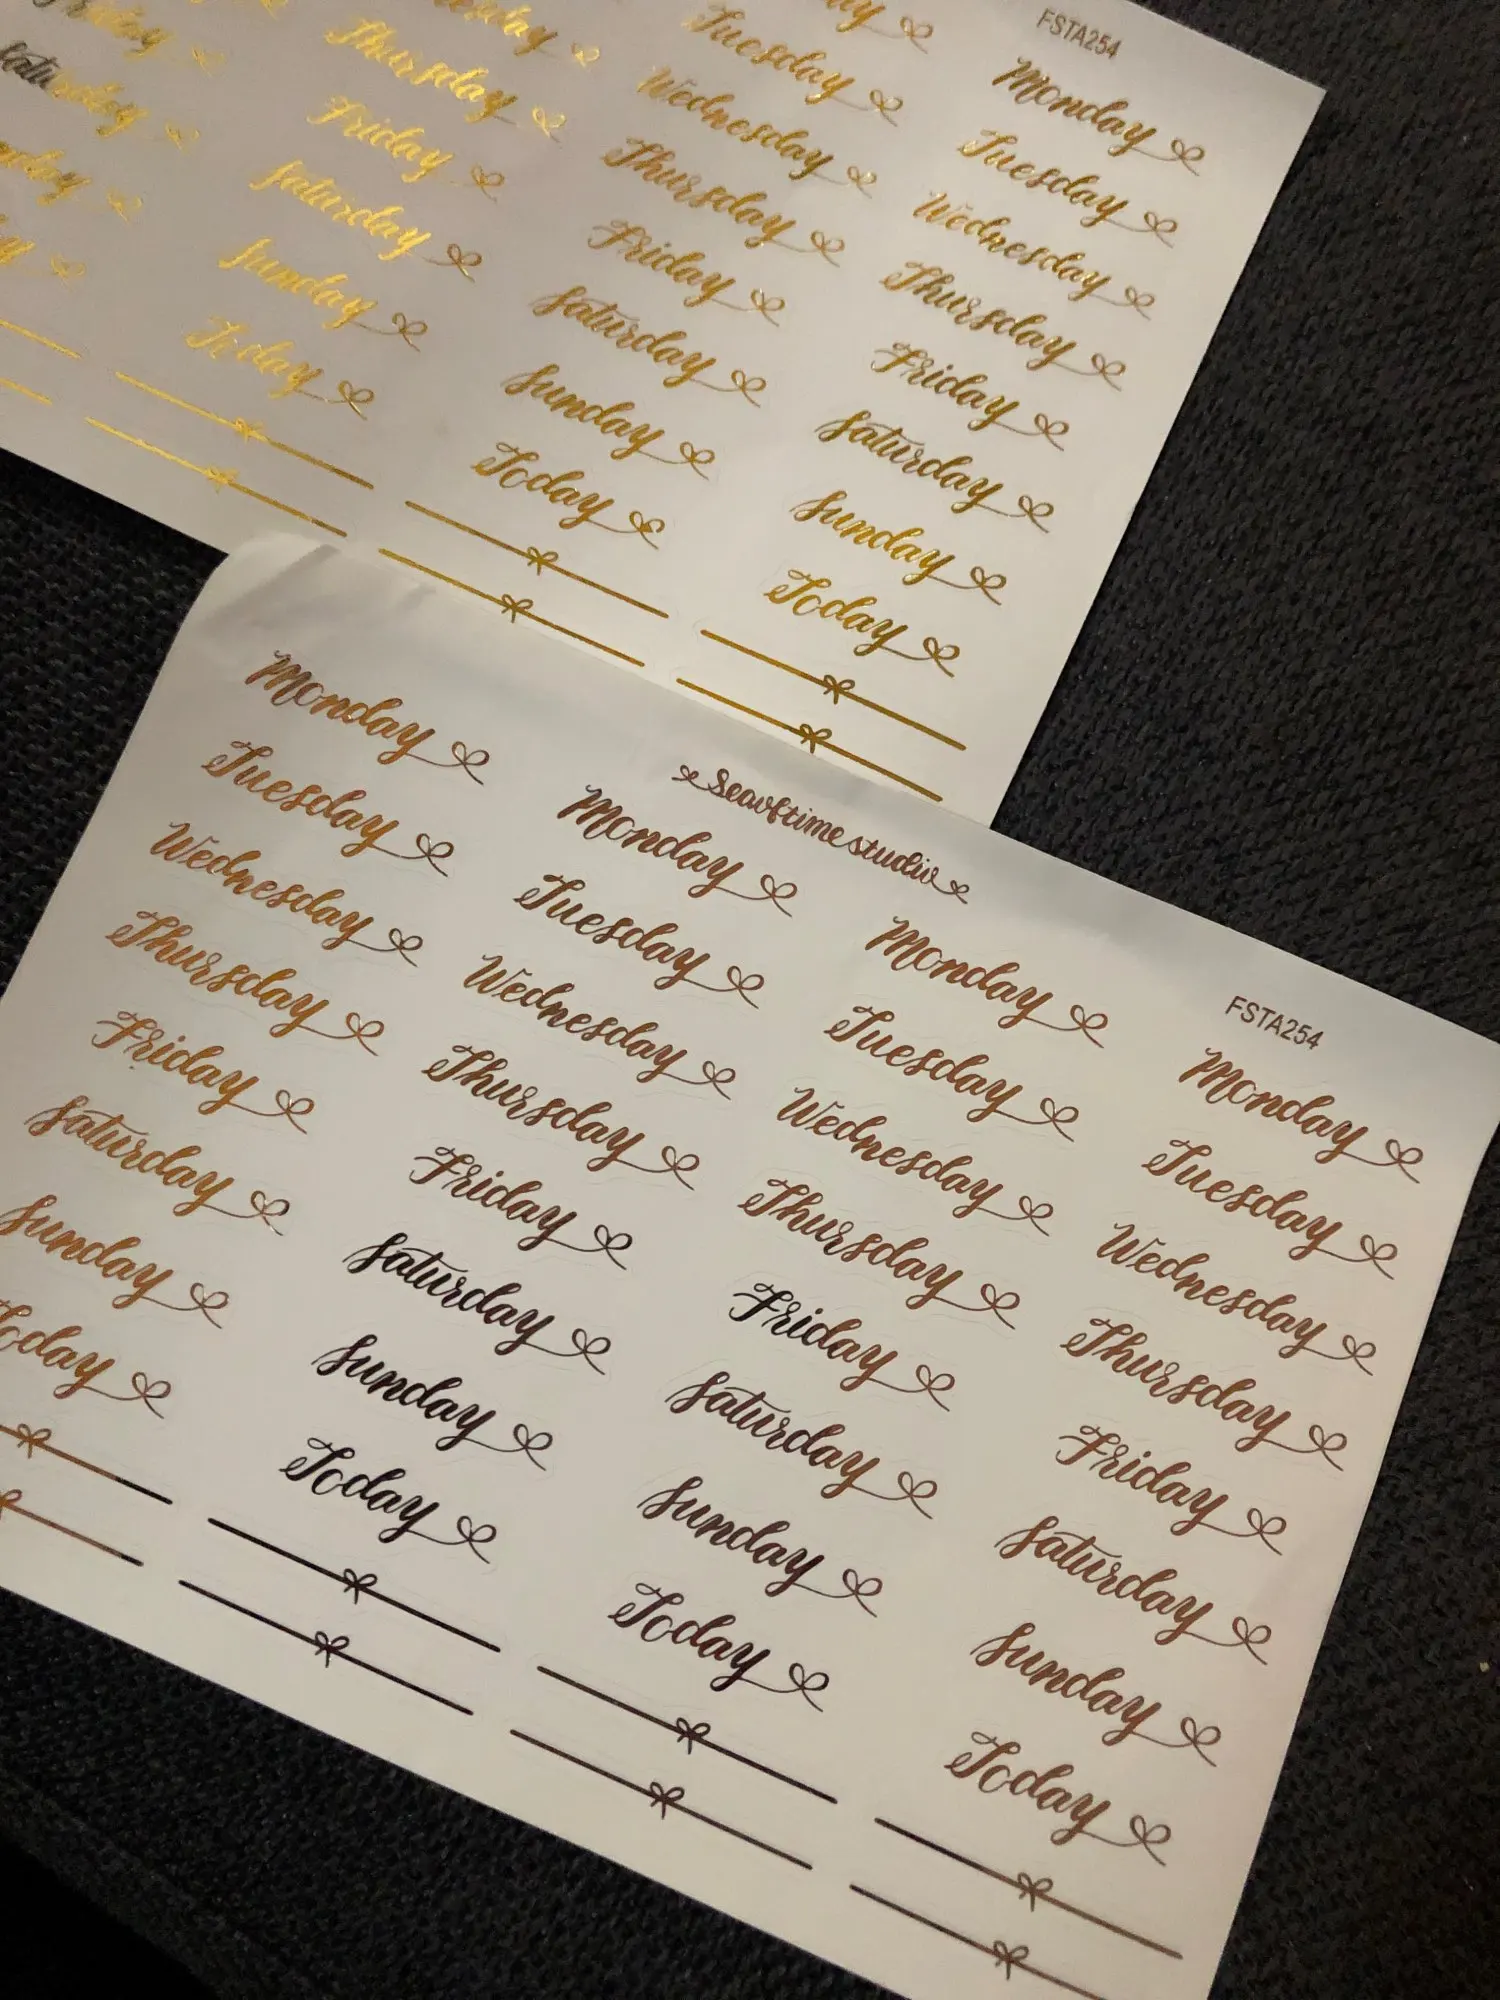 Friday
Saturday
Thursday
Friday
Saturday
Sunday
Today
Tuesday
Wednesday
Thursday
Friday
Saturday
Sunday
Today
FSTA254
Monday
Tuesday
Wednesday
Thursday
Friday
Saturday
Sunday
Today
Seaoftime studio
FSTA254
Monday
Tuesday
Wednesday
Thursday
Friday
Saturday
Sunday
Today
Monday
Tuesday
Wednesday
Thursday
Friday
Saturday
Sunday
Today
Monday
Tuesday
Wednesday
Thursday
Friday
Saturday
Sunday
Today
Monday
Tuesday
Wednesday
Thursday
Friday
Saturday
Sunday
Today